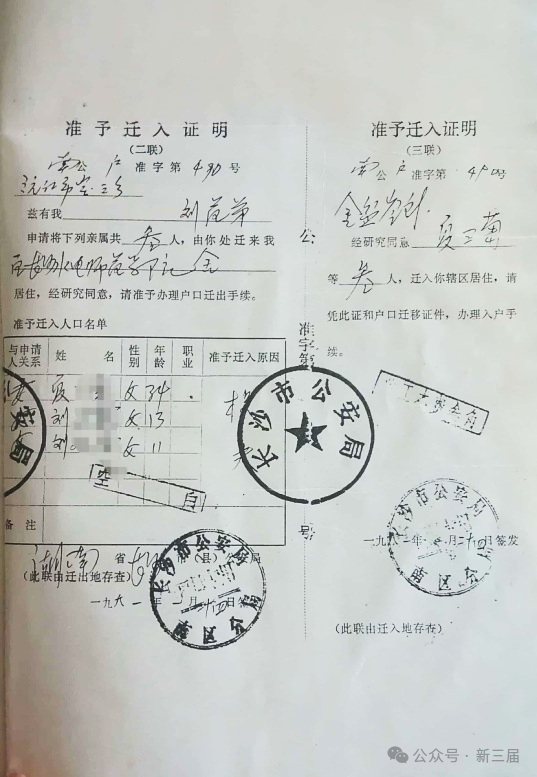 准予迁入证明
(二联)
南公户准字第430号
兹有我 刘范弟
申请将下列亲属共叁人，由你处迁来我
居住，经研究同意，请准予办理户口迁出手续。
准予迁入人口名单
与申请人关系 姓名 性别 年龄 职业 准予迁入原因
夏 女 34
刘 女 13
刘 女 11
空白
备注
长沙市公安局
湖南省 (县) 局
(此联由迁出地存查)
一九八一年 月二十四日签
长沙市公安局
南区分局
准予迁入证明
(三联)
南公户准字第430号
经研究同意 夏
等叁人，迁入你辖区居住，请
凭此证和户口迁移证件，办理入户手
续。
公
准字第
号
一九八一年 月二十四日签发
长沙市公安局
南区分局
(此联由迁入地存查)
公众号·新三届